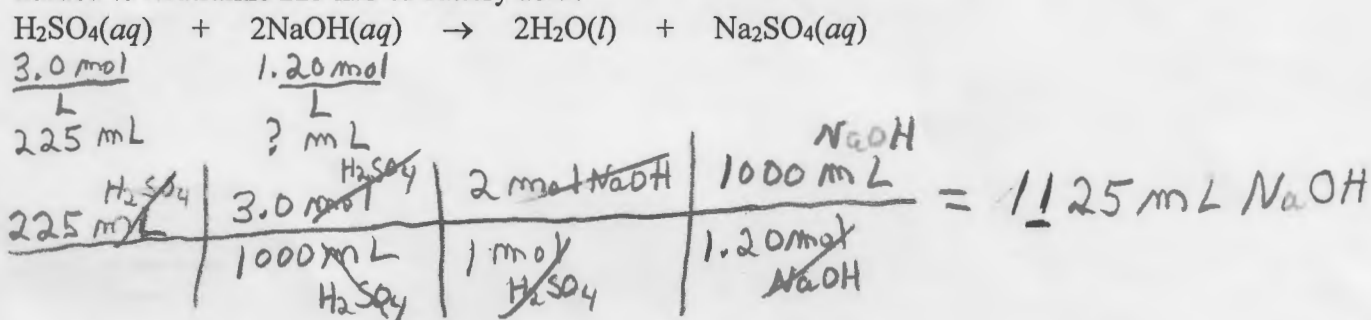 H₂SO₄(aq) + 2NaOH(aq) → 2H₂O(l) + Na₂SO₄(aq)
3.0 mol 1.20 mol
L L
225 mL ? mL
225 mL H₂SO₄ | 3.0 mol H₂SO₄ | 2 mol NaOH | 1000 mL NaOH = 1125 mL NaOH
1000 mL H₂SO₄ | 1 mol H₂SO₄ | 1.20 mol NaOH